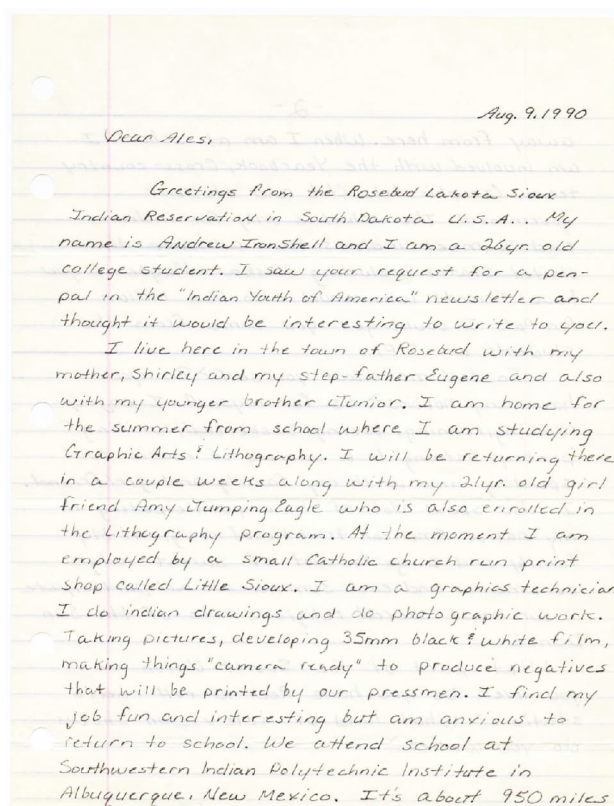 Aug. 9. 1990
Dear Ales,
Greetings from the Rosebud Lakota Sioux
Indian Reservation in South Dakota U.S.A.. My
name is Andrew IronShell and I am a 26yr. old
college student. I saw your request for a pen-
pal in the "Indian Youth of America" newsletter and
thought it would be interesting to write to you.
I live here in the town of Rosebud with my
mother, Shirley and my step-father Eugene and also
with my younger brother Junior. I am home for
the summer from school where I am studying
Graphic Arts & Lithography. I will be returning there
in a couple weeks along with my 21yr. old girl
friend Amy Jumping Eagle who is also enrolled in
the Lithography program. At the moment I am
employed by a small Catholic church run print
shop called Little Sioux. I am a graphics technician
I do indian drawings and do photographic work.
Taking pictures, developing 35mm black & white film,
making things "camera ready" to produce negatives
that will be printed by our pressmen. I find my
job fun and interesting but am anxious to
return to school. We attend school at
Southwestern Indian Polytechnic Institute in
Albuquerque, New Mexico. It's about 950 miles